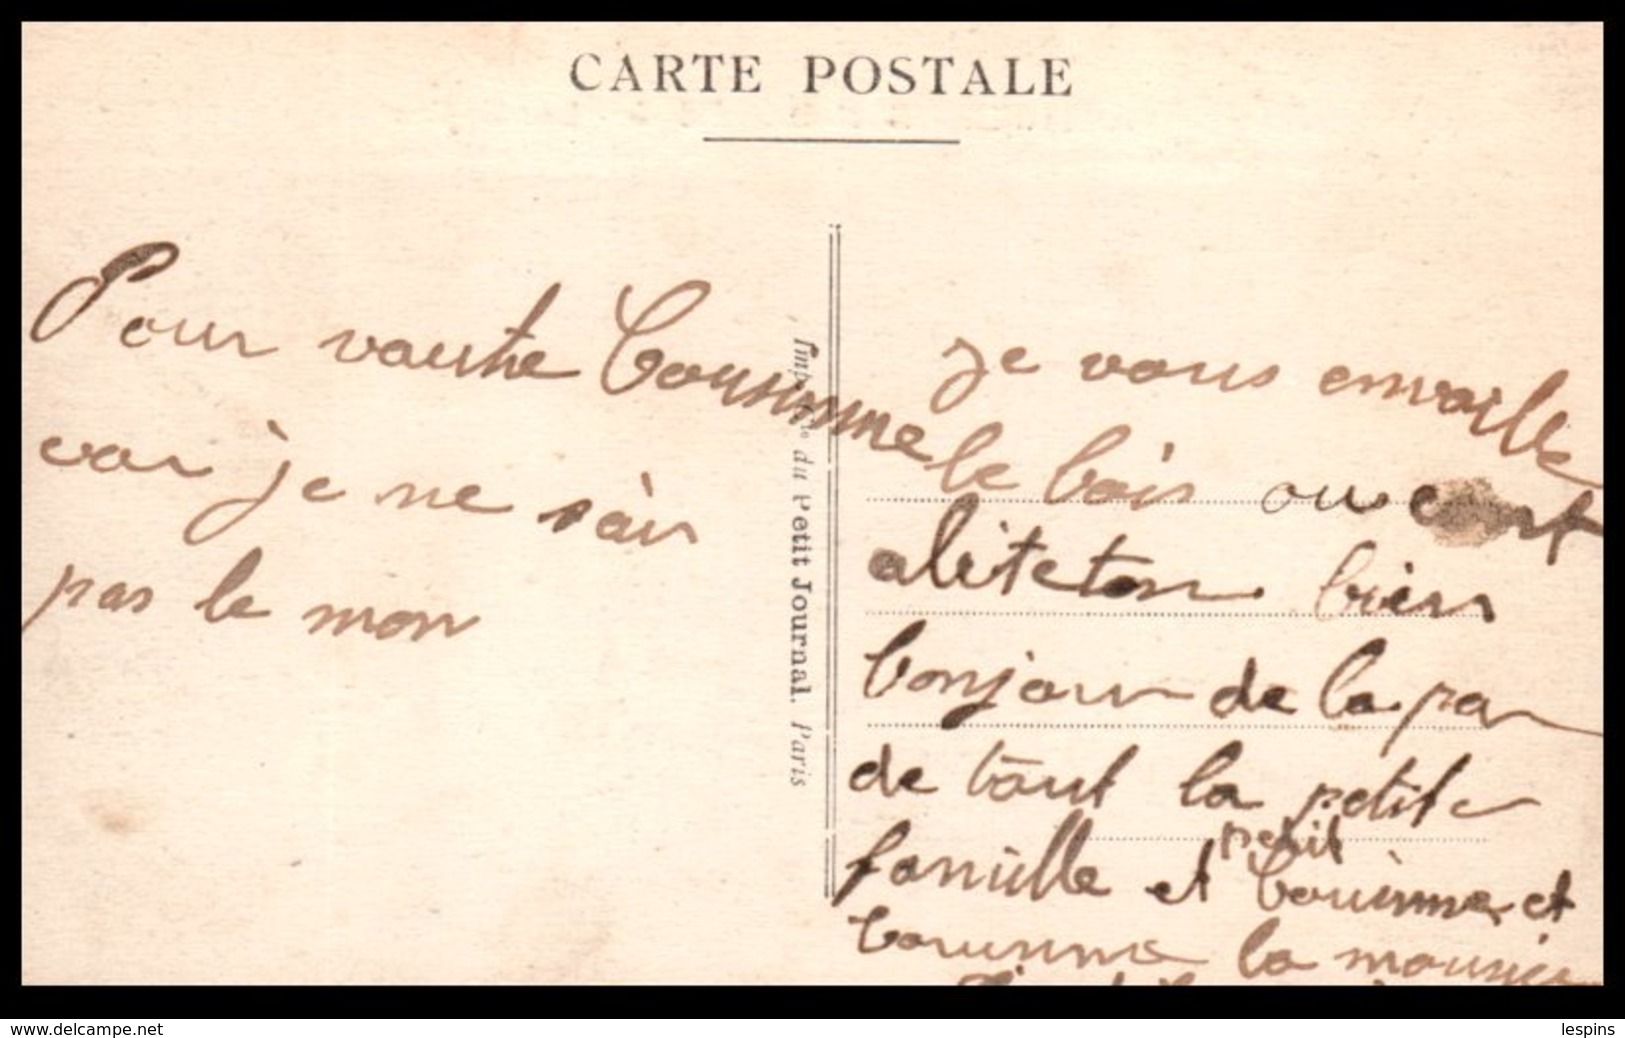 CARTE POSTALE
Pour vautre Cousinne
car je ne sair
pas le mon
Imp. du Petit Journal. Paris
je vous envoille
le bois ou
bien
bonjour de la par
de tout la petite
famille et petit Cousinne et
Cousinne la
www.delcampe.net
lespins